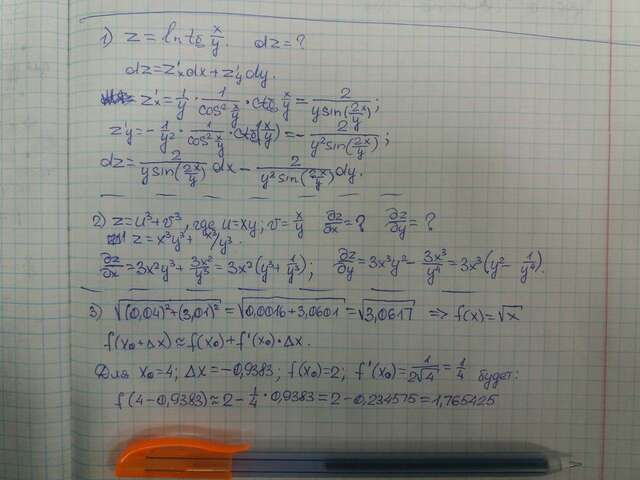 1) z = ln tg x/y. dz = ?
dz = z'x dx + z'y dy.
z'x = 1/y · 1/cos² x/y · ctg x/y = 2/(y sin(2x/y));
z'y = - 1/y² · 1/cos² x/y · ctg(x/y) = - 2/(y² sin(2x/y));
dz = 2/(y sin(2x/y)) dx - 2/(y² sin(2x/y)) dy.
2) z = u³ + v³, где u = xy; v = x/y ∂z/∂x = ? ∂z/∂y = ?
z = x³y³ + x³/y³.
∂z/∂x = 3x²y³ + 3x²/y³ = 3x²(y³ + 1/y³); ∂z/∂y = 3x³y² - 3x³/y⁴ = 3x³(y² - 1/y⁴).
3) √((0,04)² + (3,01)²) = √(0,0016 + 3,0601) = √3,0617 => f(x) = √x
f(x₀ + Δx) ≈ f(x₀) + f'(x₀) · Δx.
Для x₀ = 4; Δx = -0,9383; f(x₀) = 2; f'(x₀) = 1/(2√4) = 1/4 будет:
f(4 - 0,9383) ≈ 2 - 1/4 · 0,9383 = 2 - 0,234575 = 1,765425